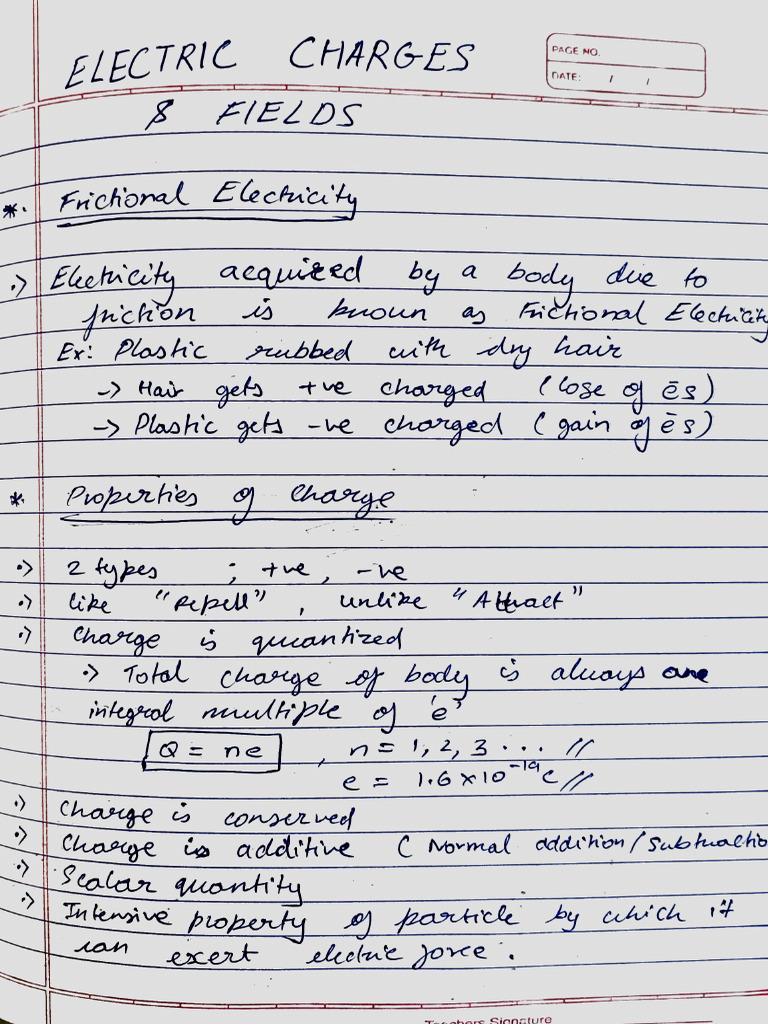 ELECTRIC CHARGES
PAGE NO.
DATE: / /
& FIELDS
*. Frictional Electricity
.> Electricity acquired by a body due to
friction is known as Frictional Electricity
Ex: Plastic rubbed with dry hair
-> Hair gets +ve charged (lose of ēs)
-> Plastic gets -ve charged (gain of ēs)
*. Properties of Charge
.> 2 types ; +ve, -ve
.> like "Repell", unlike "Attract"
.> Charge is quantized
.> Total charge of body is always one
integral multiple of 'e'
Q = ne , n = 1, 2, 3 ... //
e = 1.6 × 10⁻¹⁹C //
.> Charge is conserved
.> Charge is additive ( Normal addition/Subtractio
.> Scalar quantity
.> Intensive property of particle by which it
can exert electric force.
Teachers Signature